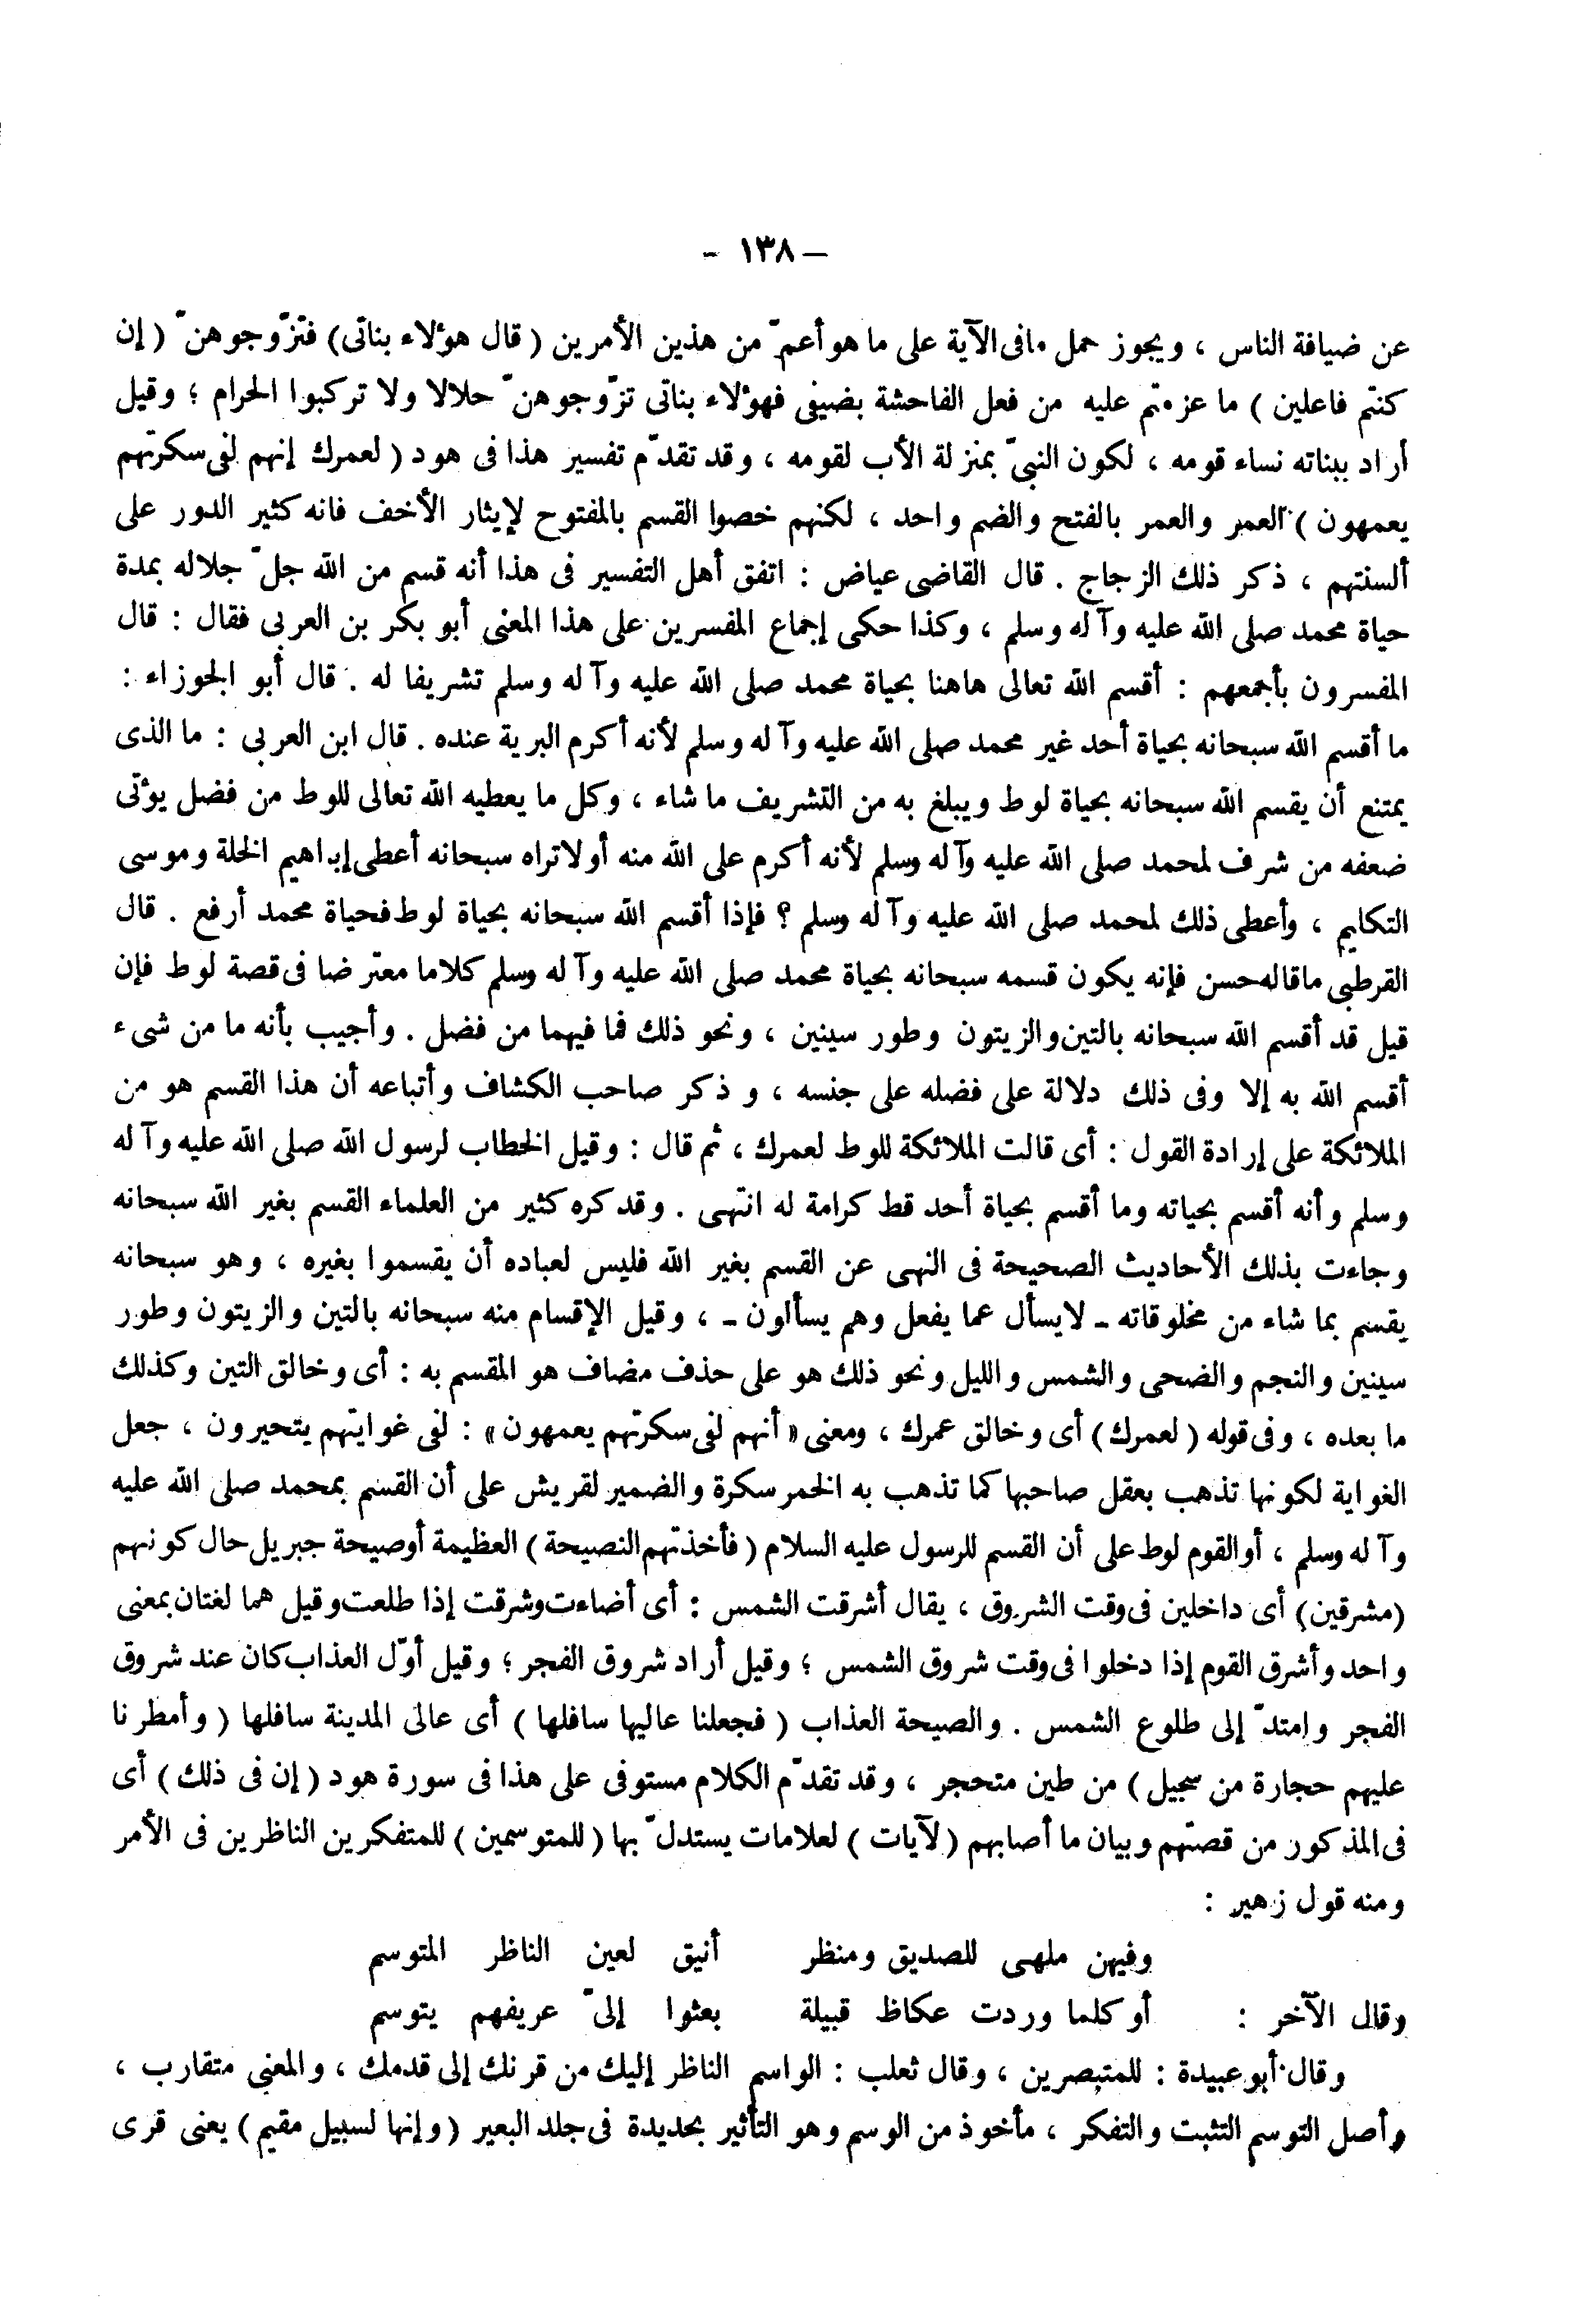 – ١٣٨ –
عن ضيافة الناس ، ويجوز حمل مافى الآية على ما هو أعمّ من هذين الأمرين ( قال هؤلاء بناتى) فتزّوجوهنّ ( إن
كنتم فاعلين ) ما عزمتم عليه من فعل الفاحشة بضيفى فهؤلاء بناتى تزّوجوهنّ حلالا ولا تركبوا الحرام ؛ وقيل
أراد ببناته نساء قومه ، لكون النبىّ بمنزلة الأب لقومه ، وقد تقدّم تفسير هذا فى هود ( لعمرك إنهم لفى سكرتهم
يعمهون ) العمر والعمر بالفتح والضم واحد ، لكنهم خصوا القسم بالمفتوح لإيثار الأخف فانه كثير الدور على
ألسنتهم ، ذكر ذلك الزجاج . قال القاضى عياض : اتفق أهل التفسير فى هذا أنه قسم من الله جلّ جلاله بمدة
حياة محمد صلى الله عليه وآله وسلم ، وكذا حكى إجماع المفسرين على هذا المعنى أبو بكر بن العربى فقال : قال
المفسرون بأجمعهم : أقسم الله تعالى هاهنا بحياة محمد صلى الله عليه وآله وسلم تشريفا له . قال أبو الجوزاء :
ما أقسم الله سبحانه بحياة أحد غير محمد صلى الله عليه وآله وسلم لأنه أكرم البرية عنده . قال ابن العربى : ما الذى
يمتنع أن يقسم الله سبحانه بحياة لوط ويبلغ به من التشريف ما شاء ، وكل ما يعطيه الله تعالى للوط من فضل يؤتى
ضعفه من شرف لمحمد صلى الله عليه وآله وسلم لأنه أكرم على الله منه أولاتراه سبحانه أعطى إبراهيم الخلة وموسى
التكليم ، وأعطى ذلك لمحمد صلى الله عليه وآله وسلم ؟ فإذا أقسم الله سبحانه بحياة لوط فحياة محمد أرفع . قال
القرطبى ماقاله حسن فإنه يكون قسمه سبحانه بحياة محمد صلى الله عليه وآله وسلم كلاما معترضا فى قصة لوط فإن
قيل قد أقسم الله سبحانه بالتين والزيتون وطور سينين ، ونحو ذلك فما فيهما من فضل . وأجيب بأنه ما من شىء
أقسم الله به إلا وفى ذلك دلالة على فضله على جنسه ، وذكر صاحب الكشاف وأتباعه أن هذا القسم هو من
الملائكة على إرادة القول : أى قالت الملائكة للوط لعمرك ، ثم قال : وقيل الخطاب لرسول الله صلى الله عليه وآله
وسلم وأنه أقسم بحياته وما أقسم بحياة أحد قط كرامة له انتهى . وقد كره كثير من العلماء القسم بغير الله سبحانه
وجاءت بذلك الأحاديث الصحيحة فى النهى عن القسم بغير الله فليس لعباده أن يقسموا بغيره ، وهو سبحانه
يقسم بما شاء من مخلوقاته ـ لايسأل عما يفعل وهم يسألون ـ ، وقيل الإقسام منه سبحانه بالتين والزيتون وطور
سينين والنجم والضحى والشمس والليل ونحو ذلك هو على حذف مضاف هو المقسم به : أى وخالق التين وكذلك
ما بعده ، وفى قوله ( لعمرك ) أى وخالق عمرك ، ومعنى « أنهم لفى سكرتهم يعمهون » : لفى غوايتهم يتحيرون ، جعل
الغواية لكونها تذهب بعقل صاحبها كما تذهب به الخمر سكرة والضمير لقريش على أن القسم بمحمد صلى الله عليه
وآله وسلم ، أو القوم لوط على أن القسم للرسول عليه السلام ( فأخذتهم النصيحة ) العظيمة أوصيحة جبريل حال كونهم
(مشرقين) أى داخلين فى وقت الشروق ، يقال أشرقت الشمس : أى أضاءت وشرقت إذا طلعت وقيل هما لغتان بمعنى
واحد وأشرق القوم إذا دخلوا فى وقت شروق الشمس ؛ وقيل أراد شروق الفجر ؛ وقيل أوّل العذاب كان عند شروق
الفجر وامتدّ إلى طلوع الشمس . والصيحة العذاب ( فجعلنا عاليها سافلها ) أى عالى المدينة سافلها ( وأمطرنا
عليهم حجارة من سجيل ) من طين متحجر ، وقد تقدّم الكلام مستوفى على هذا فى سورة هود ( إن فى ذلك ) أى
فى المذكور من قصتهم وبيان ما أصابهم ( لآيات ) لعلامات يستدلّ بها ( للمتوسمين ) للمتفكرين الناظرين فى الأمر
ومنه قول زهير :
وفيهن ملهى للصديق ومنظر أنيق لعين الناظر المتوسم
وقال الآخر : أو كلما وردت عكاظ قبيلة بعثوا إلىّ عريفهم يتوسم
وقال أبو عبيدة : للمتبصرين ، وقال ثعلب : الواسم الناظر إليك من قرنك إلى قدمك ، والمعنى متقارب ،
وأصل التوسم التثبت والتفكر ، مأخوذ من الوسم وهو التأثير بحديدة فى جلد البعير ( وإنها لسبيل مقيم ) يعنى قرى